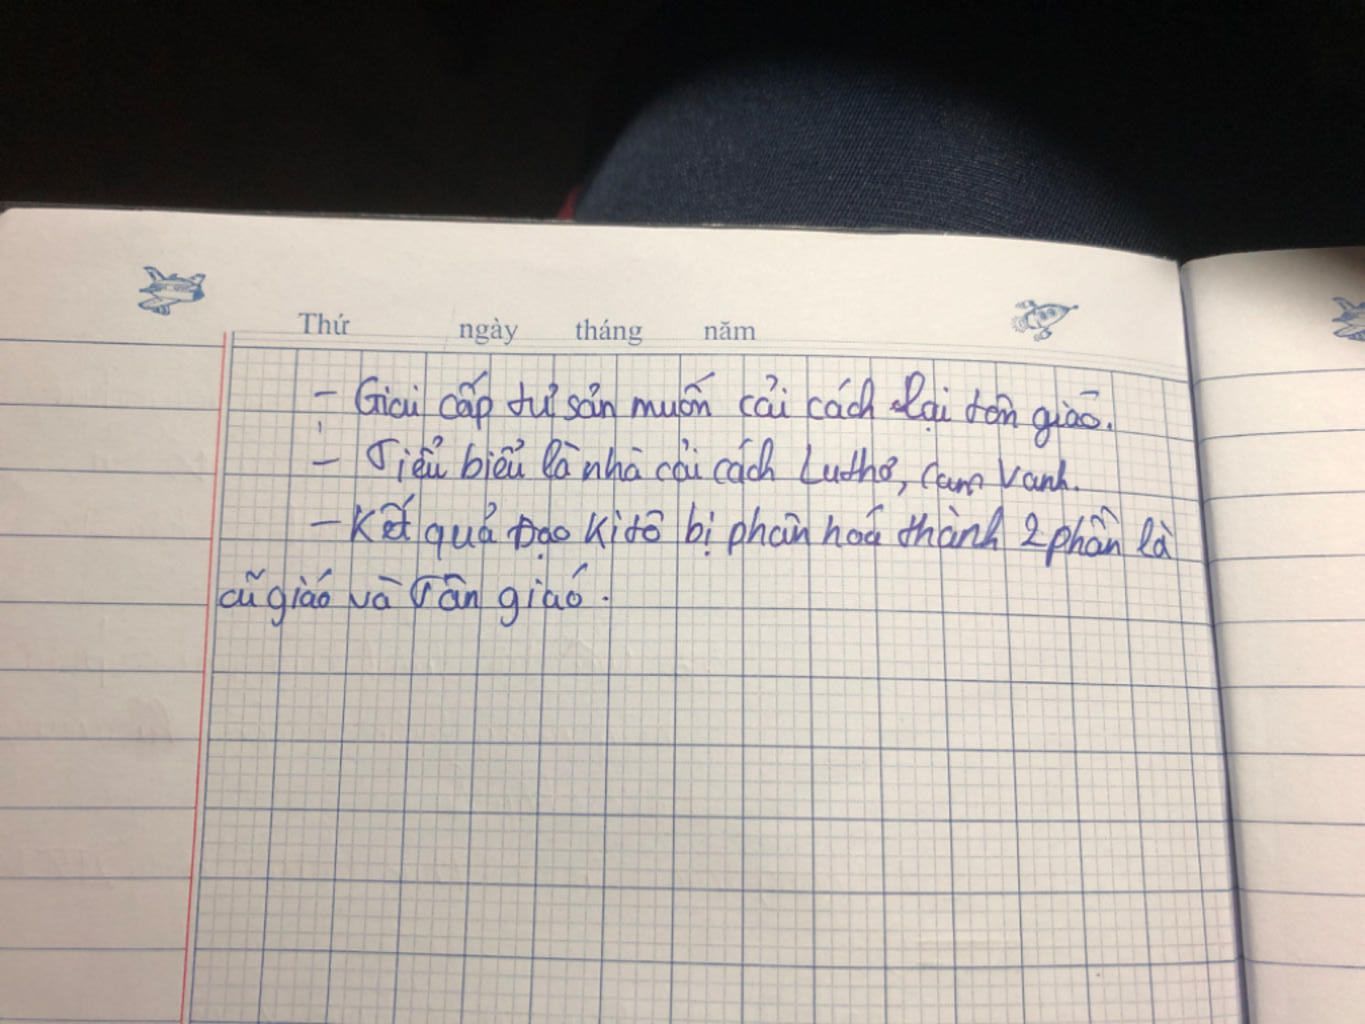 Thứ ngày tháng năm
- Giai cấp tư sản muốn cải cách lại tôn giáo.
- Tiểu biểu là nhà cải cách Luthơ, Can Vanh.
- Kết quả Đạo Kitô bị phân hoá thành 2 phần là
cũ giáo và Tân giáo.